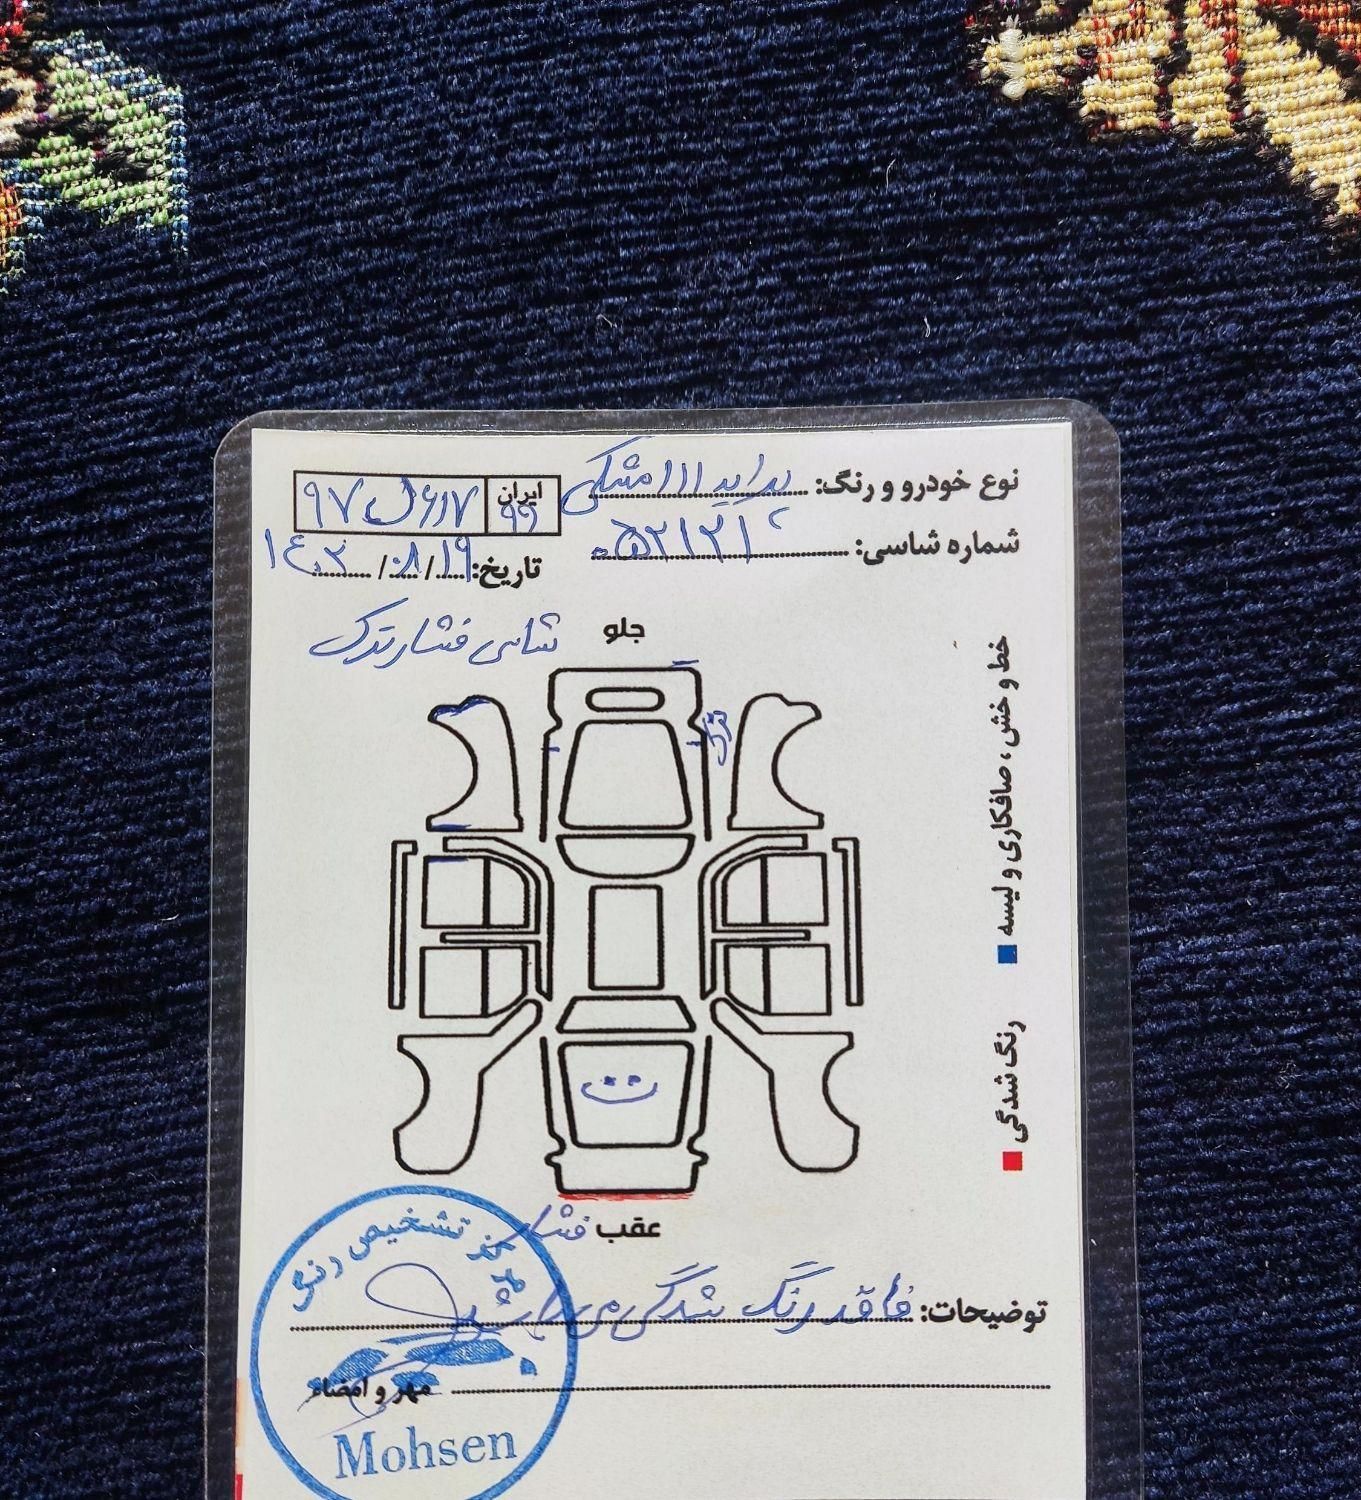 نوع خودرو و رنگ: پراید ۱۱۱ مشکی
ایران ۹۹ ۶۱۷ ل ۹۷
شماره شاسی: ۰۵۲۱۲۱
تاریخ: ۱۹/۰۸/۱۴۰۲
جلو
شاسی فشار ترک
ترک
خط و خش ، صافکاری و لیسه
رنگ شدگی
ت
عقب
فشار
توضیحات: فاقد رنگ شدگی می باشد
مهر و امضاء
مرکز تشخیص رنگ
Mohsen